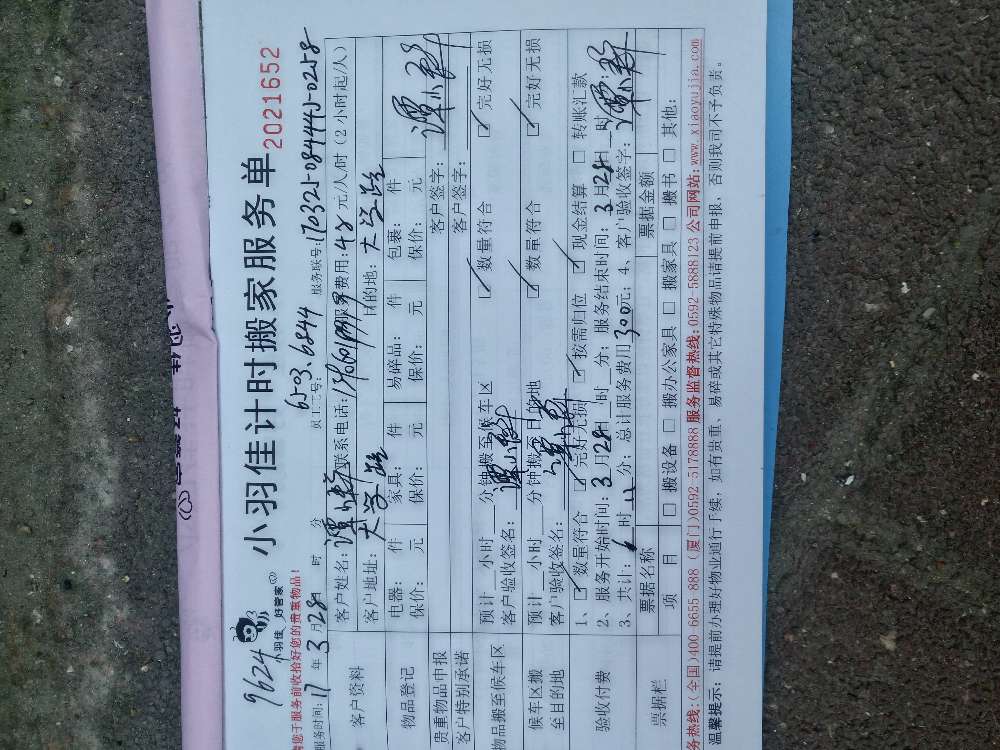 9624
小羽佳 好管家
小羽佳计时搬家服务单
2021652
请您于服务前收拾好您的贵重物品!
员工工号: 6503.6844 服务联号: 170325-084445-0258
服务时间: 17 年 3 月 28 日 时 分
客户资料
客户姓名: 联系电话: 服务费用: 48 元/人/时 (2小时起/人)
客户地址: 大学路 目的地: 大学路
物品登记
电器: 件 家具: 件 易碎品: 件 包裹: 件
保价: 元 保价: 元 保价: 元 保价: 元
贵重物品申报 客户签字:
客户特别承诺 客户签字:
物品搬至候车区
预计 小时 分钟搬至候车区 ☑ 数量符合 ☑ 完好无损
客户验收签名:
候车区搬至目的地
预计 小时 分钟搬至目的地 ☑ 数量符合 ☑ 完好无损
客户验收签名:
验收付费
1、☑ 数量符合 ☑ 完好无损 ☑ 按需归位 ☑ 现金结算 □ 转账汇款
2、服务开始时间: 3 月 28 日 时 分; 服务结束时间: 3 月 28 日 时
3、共计: 时 分; 总计服务费用 300 元; 4、客户验收签字:
票据栏
票据名称 票据金额
项 目 □ 搬设备 □ 搬办公家具 □ 搬家具 □ 搬书 □ 其他:
务热线:(全国)400 6655 888 (厦门)0592-5178888 服务监督热线:0592 5688123 公司网站:www.xiaoyujia.com
温馨提示: 请提前办理好物业通行手续, 如有贵重、易碎或其它特殊物品请提前申报, 否则我司不予负责。